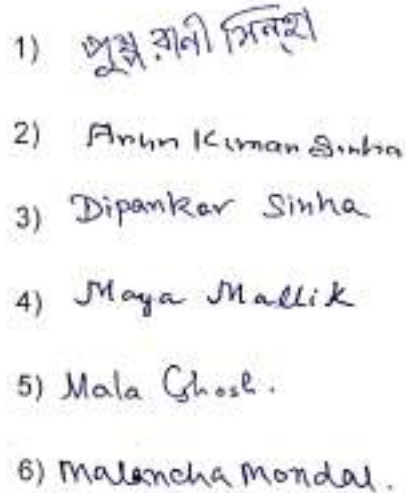 1) পুষ্প রানী সিনহা
2) Arun Kumar Sinha
3) Dipankar Sinha
4) Maya Mallik
5) Mala Ghosh.
6) Malancha Mondal.